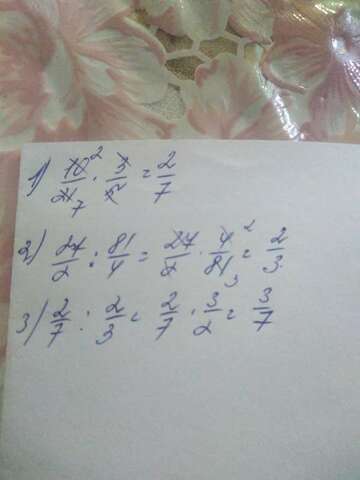 1) 10/21 2/7 · 3/5 = 2/7
2) 27/2 : 81/4 = 27/2 · 4/81 2/3 = 2/3
3) 2/7 : 2/3 = 2/7 · 3/2 = 3/7